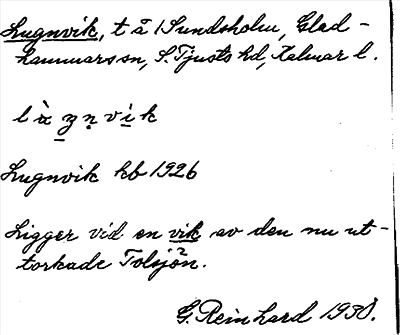 Lugnvik, t å 1 Sundsholm, Glad-
hammars sn, S. Tjusts hd, Kalmar l.
Lugnvik kb 1926
Ligger vid en vik av den nu ut-
torkade Tolsjön.
G. Reinhard 1930.